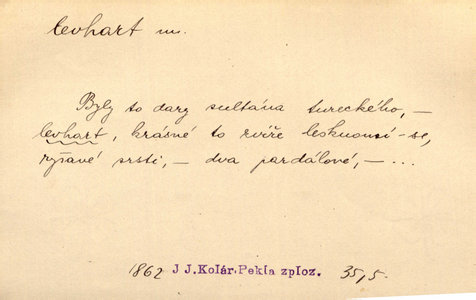 levhart m.
Byly to dary sultána tureckého, –
levhart, krásné to zvíře lesknoucí-se,
ryšavé srsti, – dva pardálové, – ...
1862 J J. Kolár. Pekla zploz. 35,5.